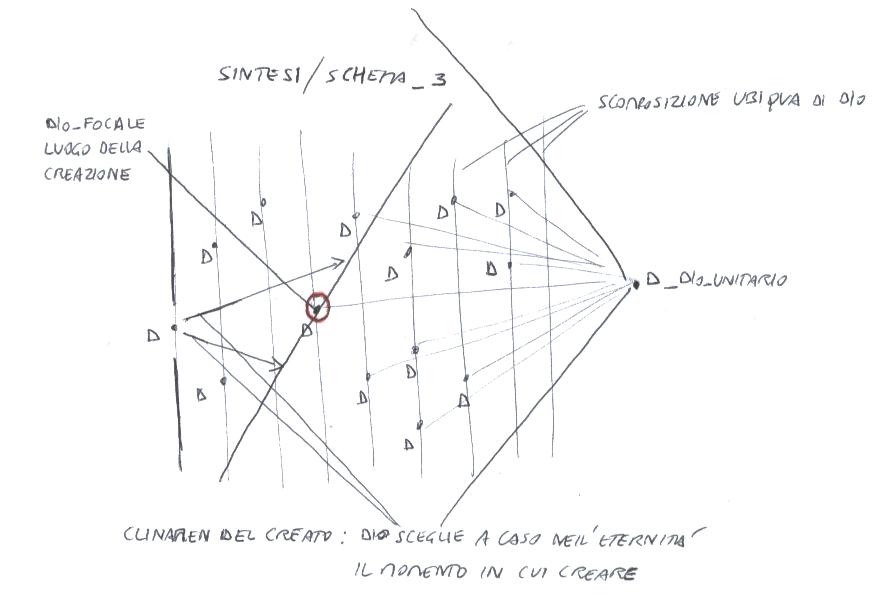 SINTESI/SCHEMA_3
SCOMPOSIZIONE UBIQUA DI DIO
DIO_FOCALE
LUOGO DELLA
CREAZIONE
D
D
D
D
D
D
D
D
D_DIO_UNITARIO
D
D
D
D
D
D
D
CLINAMEN DEL CREATO: DIO SCEGLIE A CASO NELL'ETERNITÀ
IL MOMENTO IN CUI CREARE